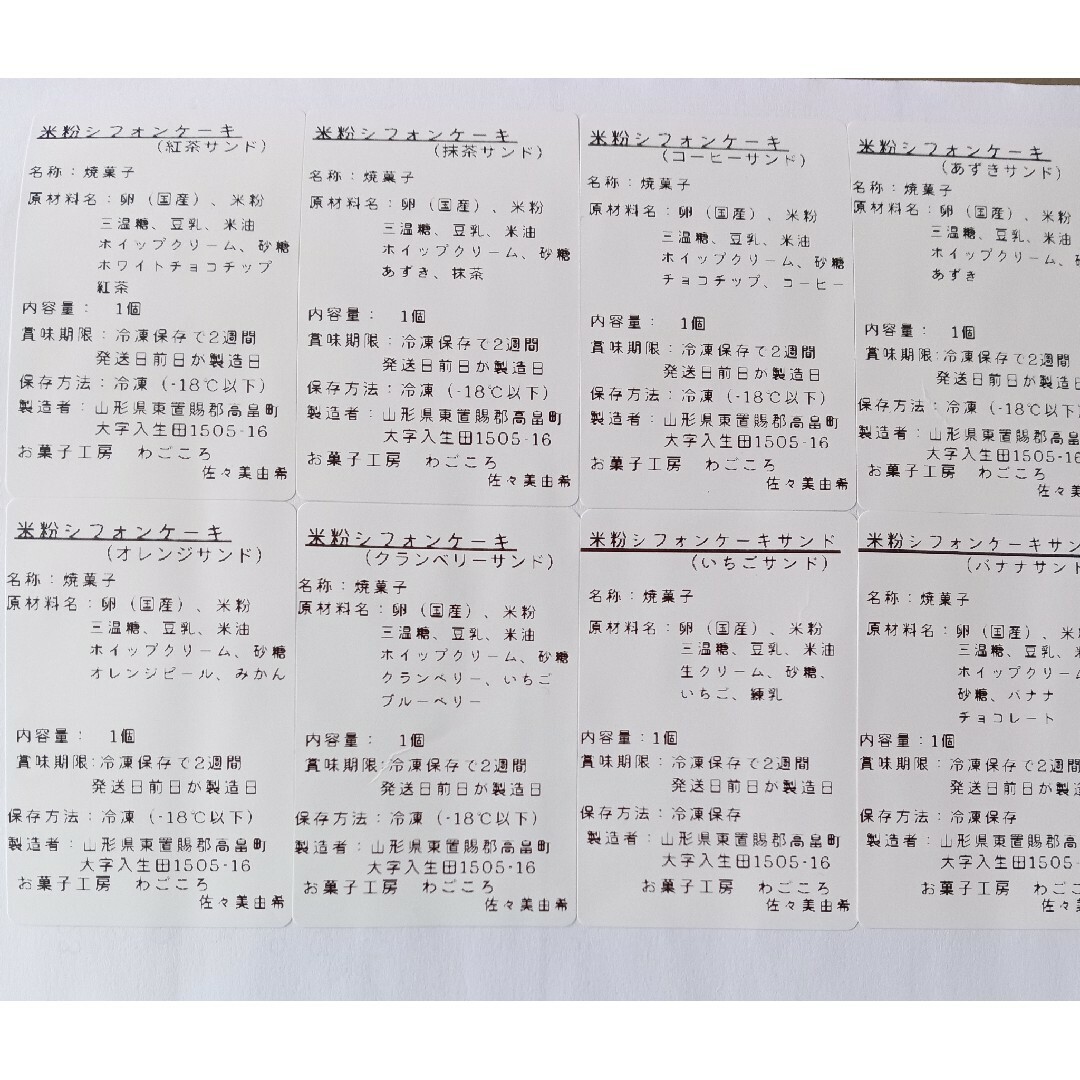 米粉シフォンケーキ
(紅茶サンド)
名称：焼菓子
原材料名：卵（国産）、米粉
三温糖、豆乳、米油
ホイップクリーム、砂糖
ホワイトチョコチップ
紅茶
内容量： 1個
賞味期限：冷凍保存で2週間
発送日前日が製造日
保存方法：冷凍（-18℃以下）
製造者：山形県東置賜郡高畠町
大字入生田1505-16
お菓子工房 わごころ
佐々美由希
米粉シフォンケーキ
(抹茶サンド)
名称：焼菓子
原材料名：卵（国産）、米粉
三温糖、豆乳、米油
ホイップクリーム、砂糖
あずき、抹茶
内容量： 1個
賞味期限：冷凍保存で2週間
発送日前日が製造日
保存方法：冷凍（-18℃以下）
製造者：山形県東置賜郡高畠町
大字入生田1505-16
お菓子工房 わごころ
佐々美由希
米粉シフォンケーキ
(コーヒーサンド)
名称：焼菓子
原材料名：卵（国産）、米粉
三温糖、豆乳、米油
ホイップクリーム、砂糖
チョコチップ、コーヒー
内容量： 1個
賞味期限：冷凍保存で2週間
発送日前日が製造日
保存方法：冷凍（-18℃以下）
製造者：山形県東置賜郡高畠町
大字入生田1505-16
お菓子工房 わごころ
佐々美由希
米粉シフォンケーキ
(あずきサンド)
名称：焼菓子
原材料名：卵（国産）、米粉
三温糖、豆乳、米油
ホイップクリーム、
あずき
内容量： 1個
賞味期限：冷凍保存で2週間
発送日前日が製造日
保存方法：冷凍（-18℃以下
製造者：山形県東置賜郡高畠
大字入生田1505-16
お菓子工房 わごころ
佐々美
米粉シフォンケーキ
(オレンジサンド)
名称：焼菓子
原材料名：卵（国産）、米粉
三温糖、豆乳、米油
ホイップクリーム、砂糖
オレンジピール、みかん
内容量： 1個
賞味期限：冷凍保存で2週間
発送日前日が製造日
保存方法：冷凍（-18℃以下）
製造者：山形県東置賜郡高畠町
大字入生田1505-16
お菓子工房 わごころ
佐々美由希
米粉シフォンケーキ
(クランベリーサンド)
名称：焼菓子
原材料名：卵（国産）、米粉
三温糖、豆乳、米油
ホイップクリーム、砂糖
クランベリー、いちご
ブルーベリー
内容量： 1個
賞味期限：冷凍保存で2週間
発送日前日が製造日
保存方法：冷凍（-18℃以下）
製造者：山形県東置賜郡高畠町
大字入生田1505-16
お菓子工房 わごころ
佐々美由希
米粉シフォンケーキサンド
(いちごサンド)
名称：焼菓子
原材料名：卵（国産）、米粉
三温糖、豆乳、米油
生クリーム、砂糖、
いちご、練乳
内容量：1個
賞味期限：冷凍保存で2週間
発送日前日が製造日
保存方法：冷凍保存
製造者：山形県東置賜郡高畠町
大字入生田1505-16
お菓子工房 わごころ
佐々美由希
米粉シフォンケーキサン
(バナナサンド
名称：焼菓子
原材料名：卵（国産）、米
三温糖、豆乳、米
ホイップクリー
砂糖、バナナ
チョコレート
内容量：1個
賞味期限：冷凍保存で2週
発送日前日が製造
保存方法：冷凍保存
製造者：山形県東置賜郡高畠
大字入生田1505-
お菓子工房 わご
佐々